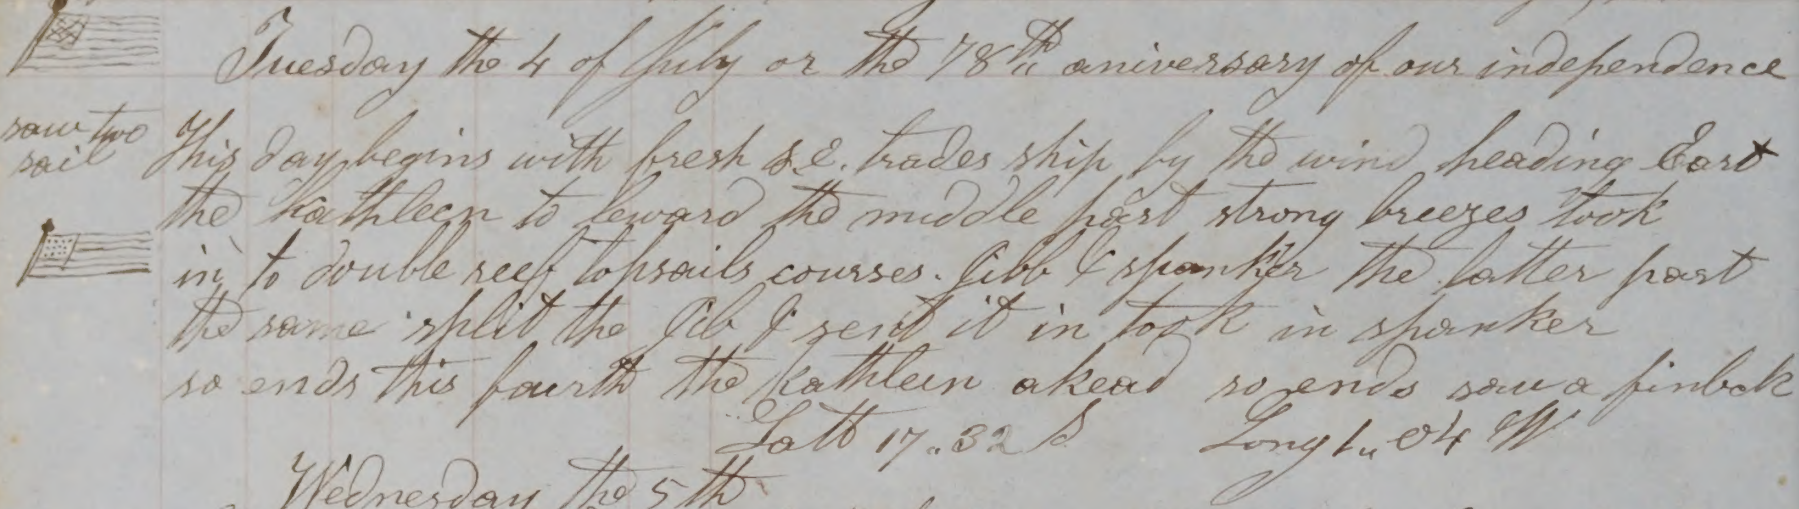 Tuesday the 4 of July or the 78th aniversary of our independence
saw two
sail
This day begins with fresh S.E. trades ship by the wind heading East
the Kathleen to leward the middle part strong breezes took
in to double reef topsails courses. Jibb & spanker the latter part
the same split the Jib & sent it in took in spanker
so ends this fourth the Kathleen ahead so ends saw a finback
Latt 17"32 S Long 1"04 W
Wednesday the 5th